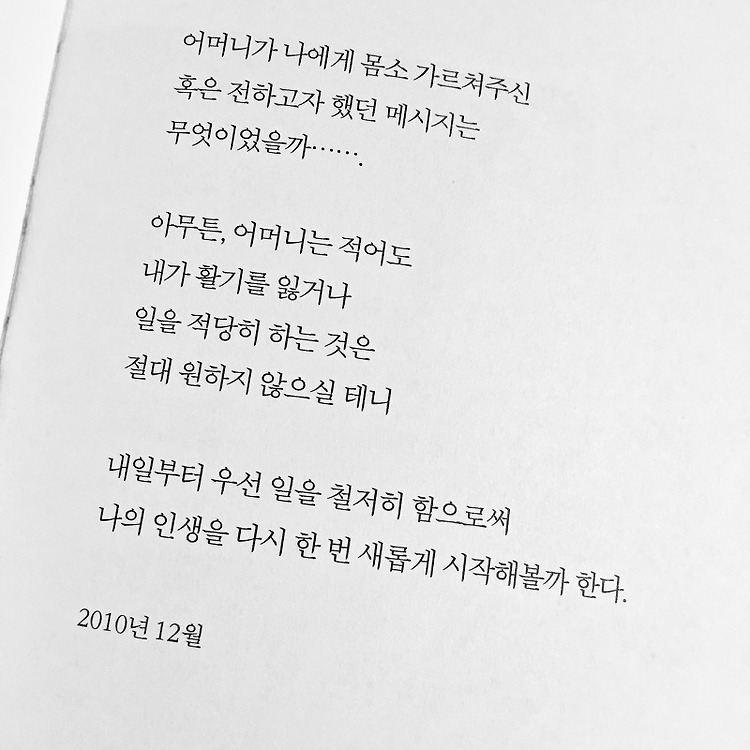 어머니가 나에게 몸소 가르쳐주신
혹은 전하고자 했던 메시지는
무엇이었을까…….
아무튼, 어머니는 적어도
내가 활기를 잃거나
일을 적당히 하는 것은
절대 원하지 않으실 테니
내일부터 우선 일을 철저히 함으로써
나의 인생을 다시 한 번 새롭게 시작해볼까 한다.
2010년 12월